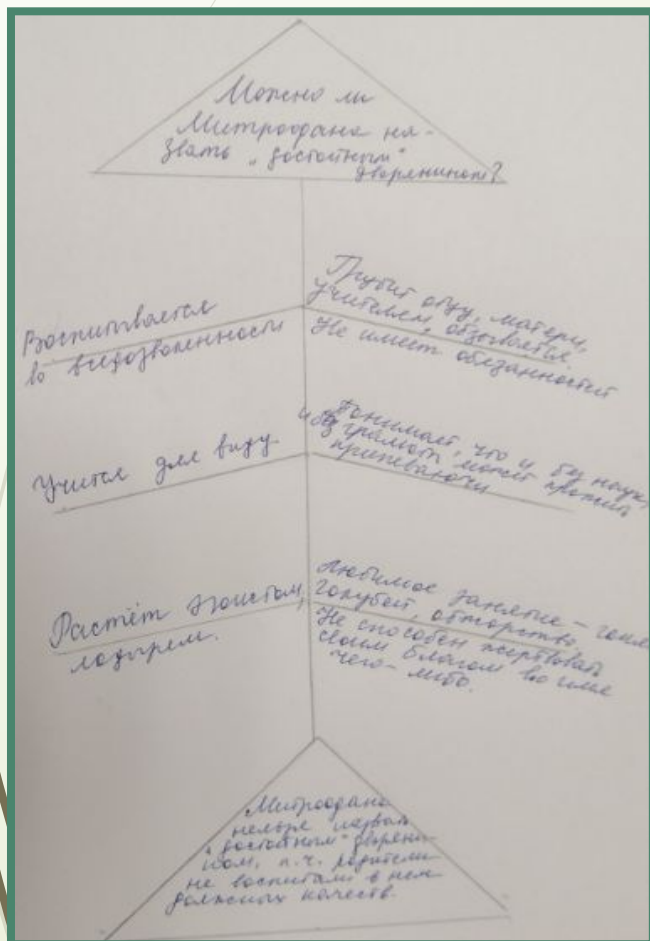 Можно ли
Митрофана на-
звать „достойным“
дворянином?
Воспитывается
во вседозволенности
Грубит отцу, матери,
учителям, обзывается.
Не имеет обязанностей
Учится для виду.
Понимает, что и без наук,
и без грамоты может прожить
припеваючи
Растёт эгоистом,
лодырем.
Любимое занятие – гонять
голубей, обжорство.
Не способен жертвовать
своим благом во имя
чего-либо.
Митрофана
нельзя назвать
„достойным“ дворяни-
ном, п.ч. родители
не воспитали в нем
должных качеств.